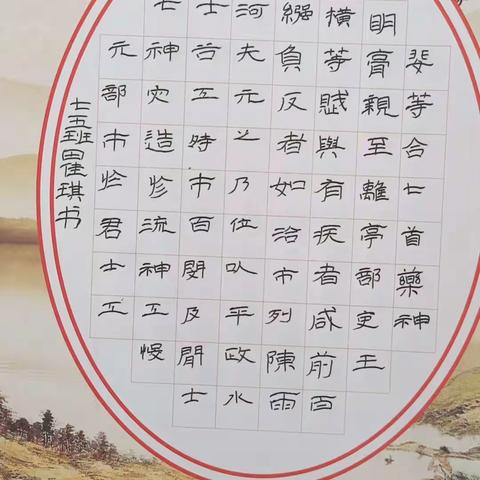 等合七首藥神
明膏親至離亭部吏王
橫等賦與有疾者咸前百
繦負反者如治市列陳雨
河夫元之乃位以平政水
士工時市百及閒士
七神灾造流神工慢
元部市君士工
七五班瞿琪书